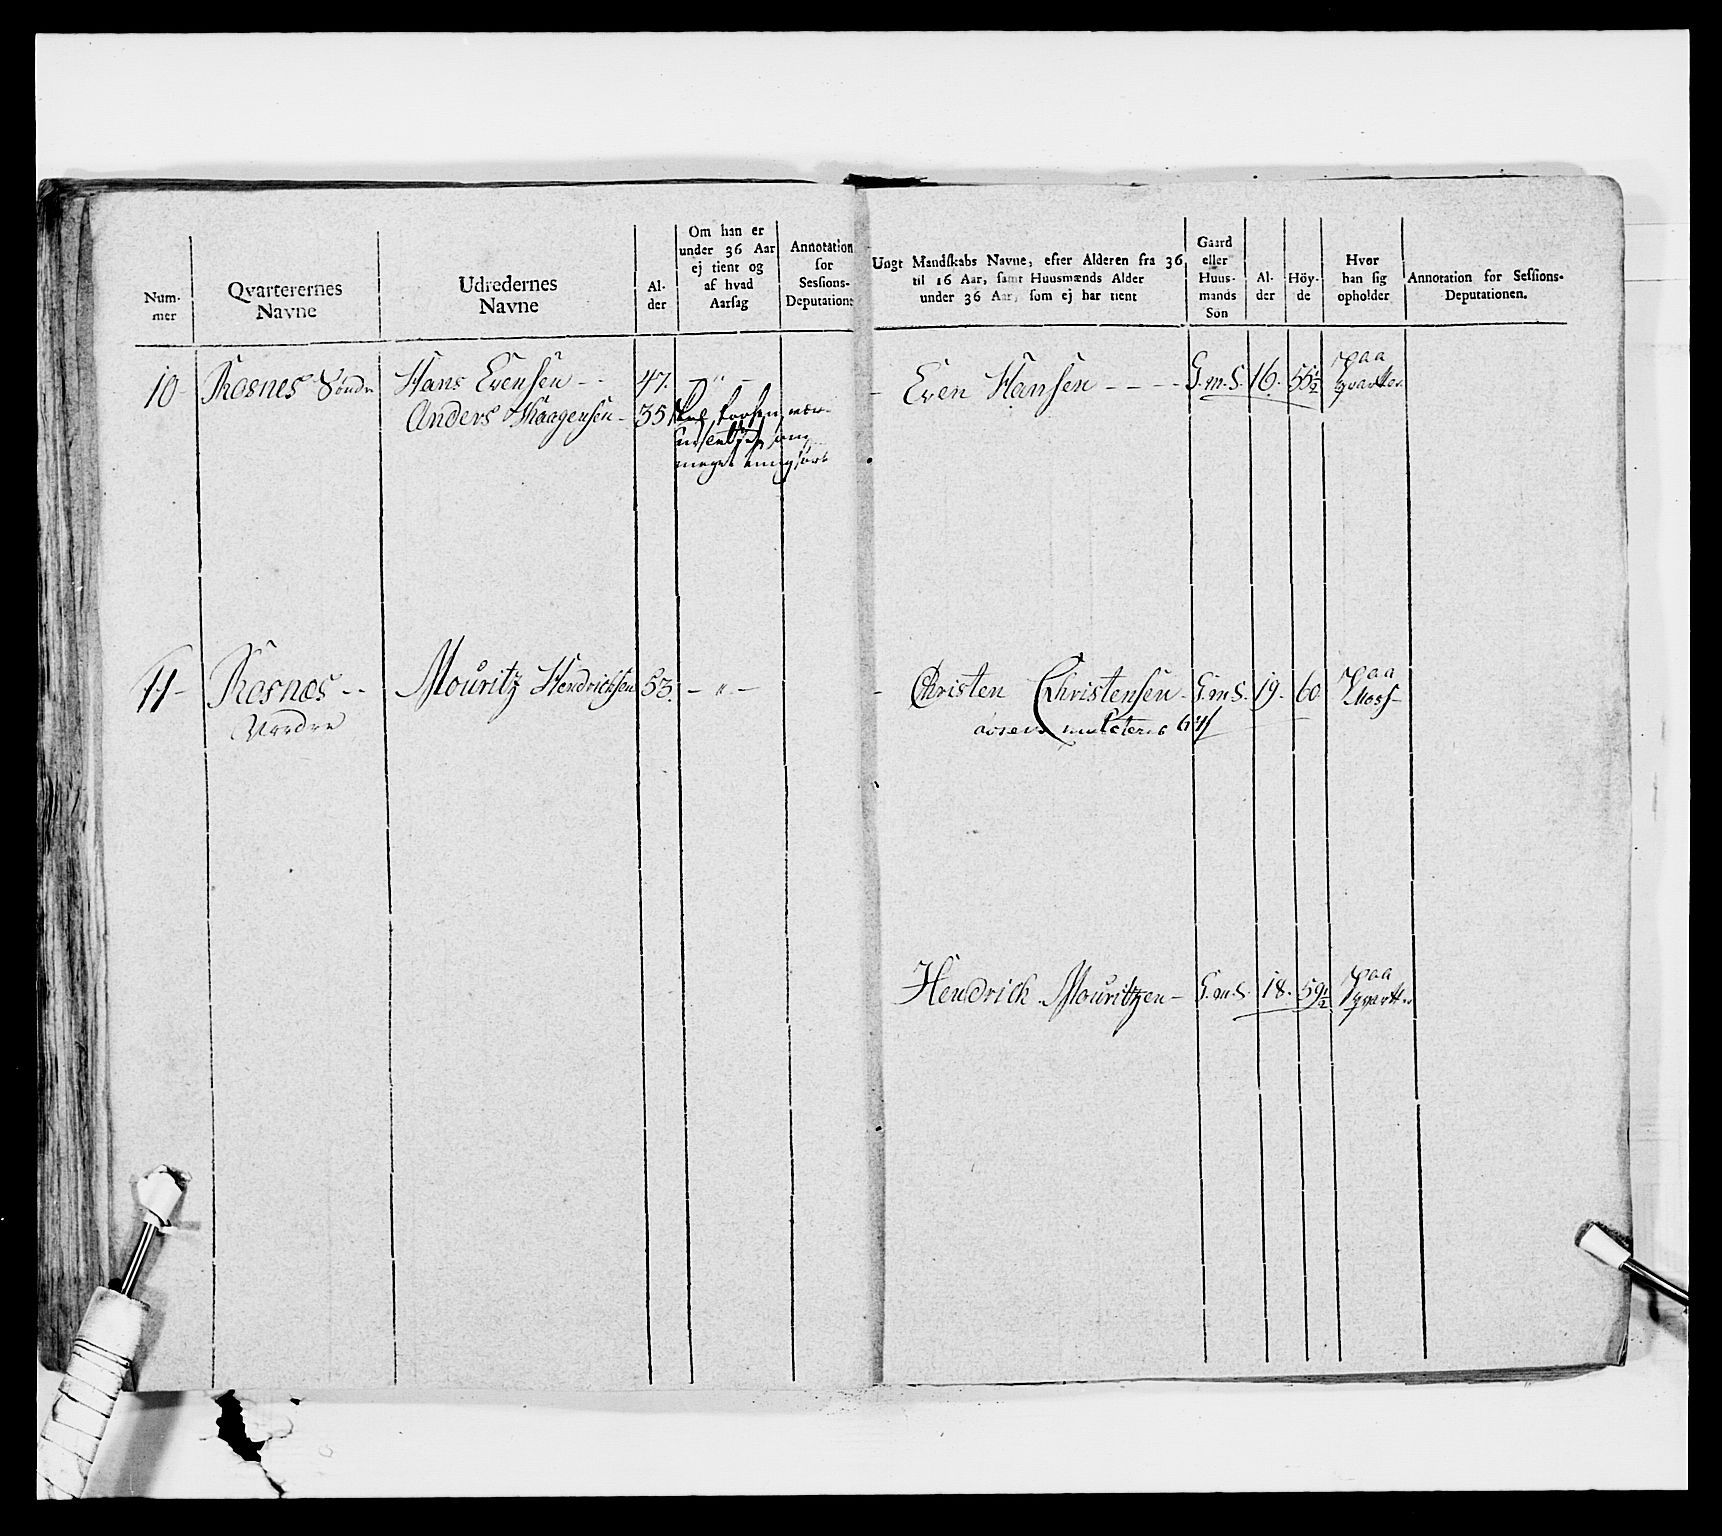 Num-
mer
Qvarterernes
Navne
Udredernes
Navne
Al-
der
Om han er
under 36 Aar
ej tient og
af hvad
Aarsag
Annotation
for
Sessions-
Deputationen
Ungt Mandskabs Navne, efter Alderen fra 36
til 16 Aar, samt Huusmænds Alder
under 36 Aar, som ej har tient
Gaard
eller
Huus-
mands
Søn
Al-
der
Höy-
de
Hvor
han sig
opholder
Annotation for Sessions-
Deputationen.
10 Rosnes Søndre Hans Evensen - - 47. - " -
Anders Haagensen - 35
meget
- Even Hansen - - - - G.m.S. 16. 55 1/2 paa
qvarter
11 - Rosnæs - - Mouritz Hendricksen 53. - " -
Nordre
- Christen Christensen - G.m.S. 19. 60 paa
Moss -
Hendrick Mouritzen - G.m.S. 18. 59 1/2 paa
qvarter